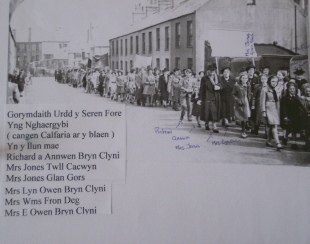 Gorymdaith Urdd y Seren Fore
Yng Nghaergybi
( cangen Calfaria ar y blaen )
Yn y llun mae
Richard a Annwen Bryn Clyni
Mrs Jones Twll Cacwyn
Mrs Jones Glan Gors
Mrs Lyn Owen Bryn Clyni
Mrs Wms Fron Deg
Mrs E Owen Bryn Clyni
Mrs Jones